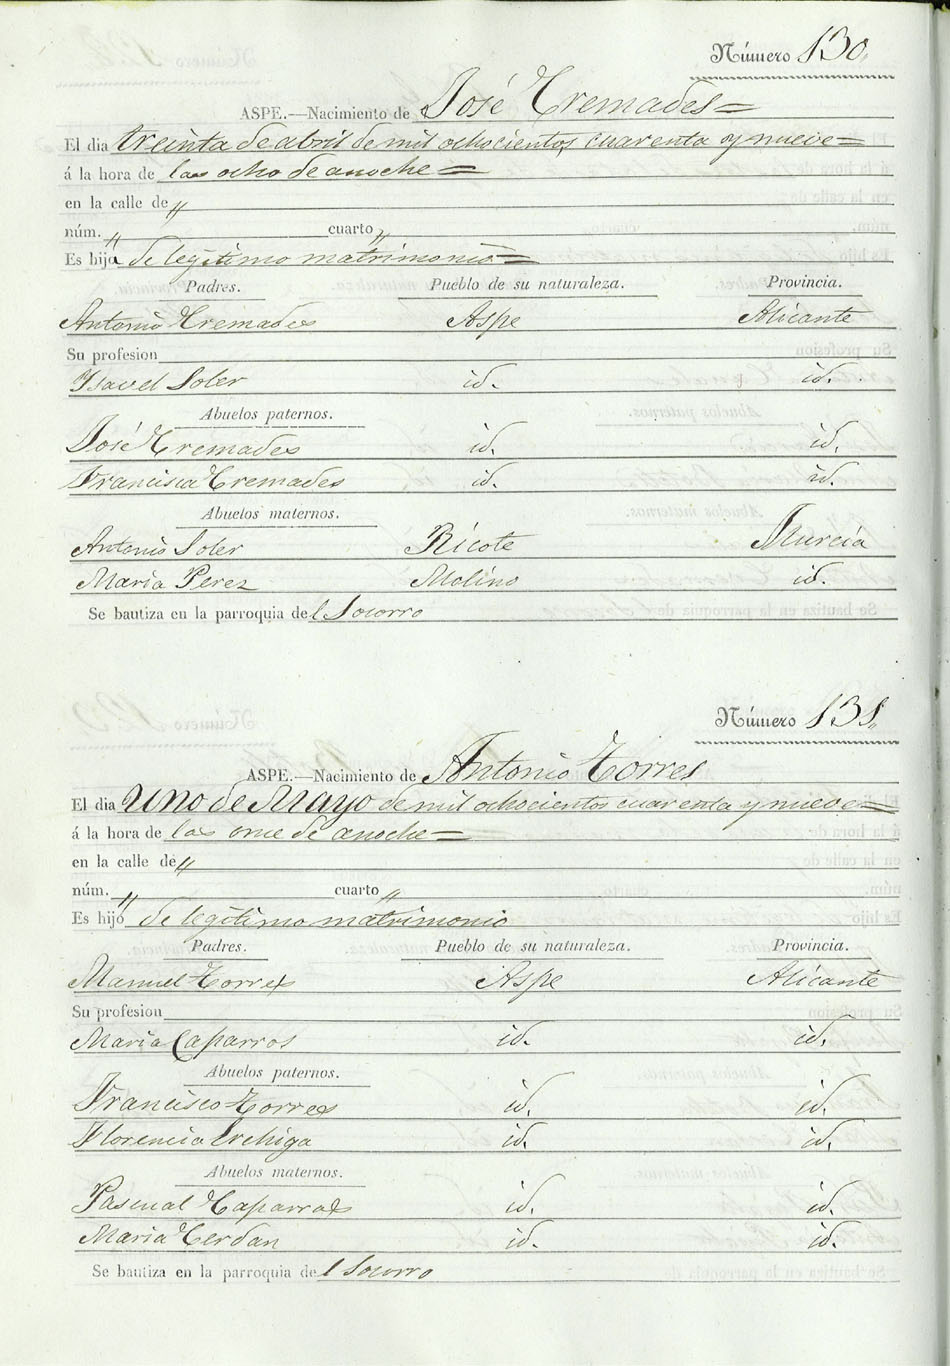 Número 130.
ASPE.—Nacimiento de José Cremades=
El dia treinta de abril de mil ochocientos cuarenta y nueve=
á la hora de las ocho de anoche=
en la calle de "
núm. " cuarto "
Es hijo de legitimo matrimonio=
Padres. Pueblo de su naturaleza. Provincia.
Antonio Cremades Aspe Alicante
Su profesion
Ysavel Soler id. id.
Abuelos paternos.
José Cremades id. id.
Francisca Cremades id. id.
Abuelos maternos.
Antonio Soler Ricote Murcia
Maria Perez Molino id.
Se bautiza en la parroquia del Socorro
Número 131.
ASPE.—Nacimiento de Antonio Torres
El dia uno de Mayo de mil ochocientos cuarenta y nueve=
á la hora de las once de anoche=
en la calle de "
núm. " cuarto "
Es hijo de legitimo matrimonio
Padres. Pueblo de su naturaleza. Provincia.
Manuel Torres Aspe Alicante
Su profesion
Maria Caparros id. id.
Abuelos paternos.
Francisco Torres id. id.
Florencia id. id.
Abuelos maternos.
Pascual Caparros id. id.
Maria Cerdan id. id.
Se bautiza en la parroquia del Socorro